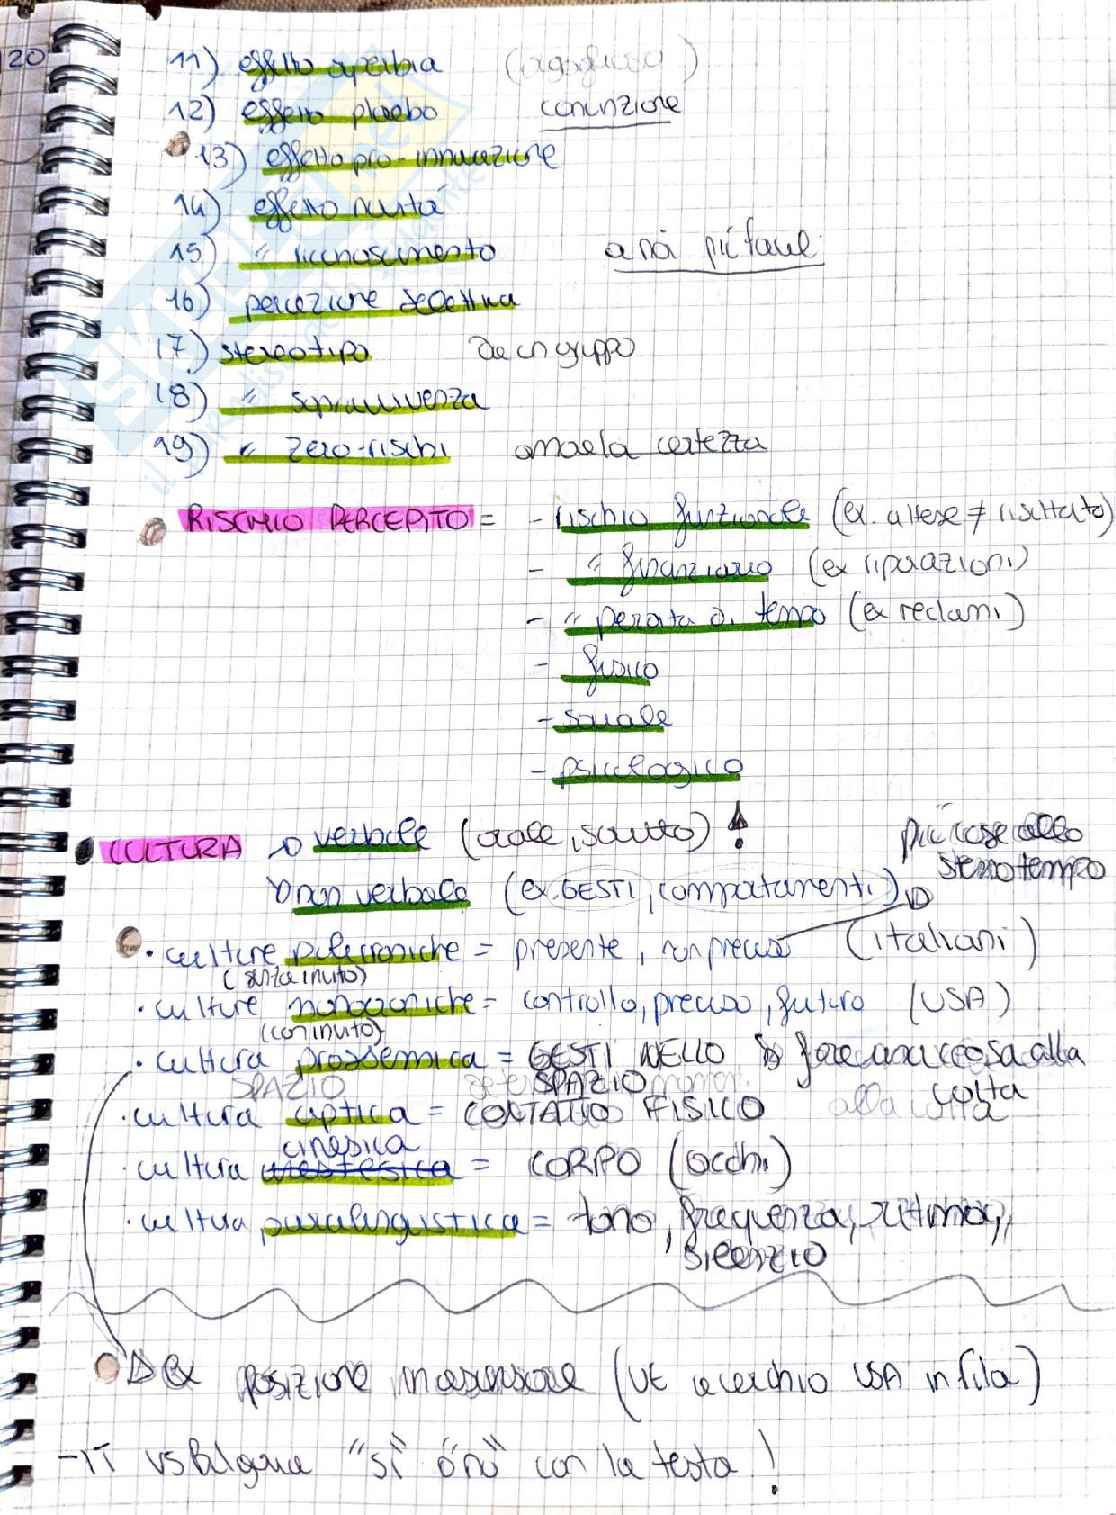 20
11) effetto superbia
12) effetto placebo convinzione
13) effetto pro-innovazione
14) effetto novità
15) " riconoscimento a noi più
16) percezione selettiva
17) stereotipo da un gruppo
18) " sopravvivenza
19) " zero-rischi amo la certezza
RISCHIO PERCEPITO = - rischio funzionale (ex. attese ≠ risultato)
- " finanziario (ex riparazioni)
- " perdita di tempo (ex reclami)
- fisico
- sociale
- psicologico
CULTURA verbale (orale, scritto) !
più cose allo stesso tempo
non verbale (ex. GESTI, comportamenti)
· culture policroniche = presente, non preciso (italiani)
(senza inuto)
· culture monocroniche = controllo, preciso, futuro (USA)
(con inuto)
· cultura prossemica = GESTI NELLO SPAZIO
fare una cosa alla volta
SPAZIO
· cultura aptica = CONTATTO FISICO
alla volta
· cultura cinesica = CORPO (occhi)
· cultura paralinguistica = tono, frequenza, ritmo, silenzio
ex posizione in ascensore (UE a cerchio USA in fila)
- IT vs Bulgaria "sì" o "no" con la testa!